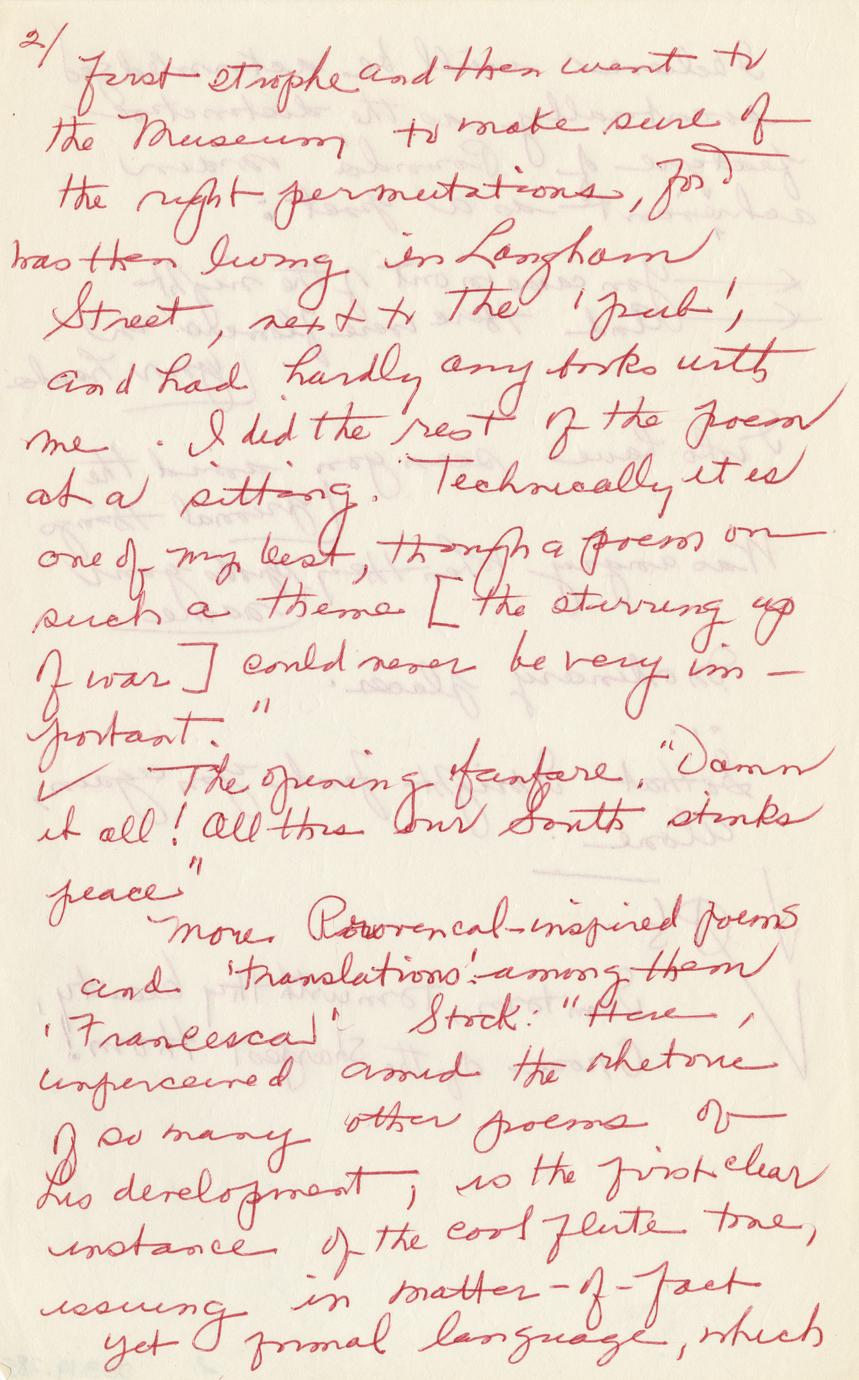 2/
first strophe and then went to
the Museum to make sure of
the right permutations, for I
was then living in Langham
Street, next to the 'pub',
and had hardly any books with
me. I did the rest of the poem
at a sitting. Technically it is
one of my best, though a poem on
such a theme [the stirring up
of war] could never be very im-
portant."
✓ The opening fanfare, "Damn
it all! All this our South stinks
peace"
More Provencal-inspired poems
and 'translations'-among them
'Francesca' Stock: "Here,
unperceived amid the rhetoric
of so many other poems of
his development, is the first clear
instance of the cool flute tone,
issuing in matter-of-fact
yet formal language, which